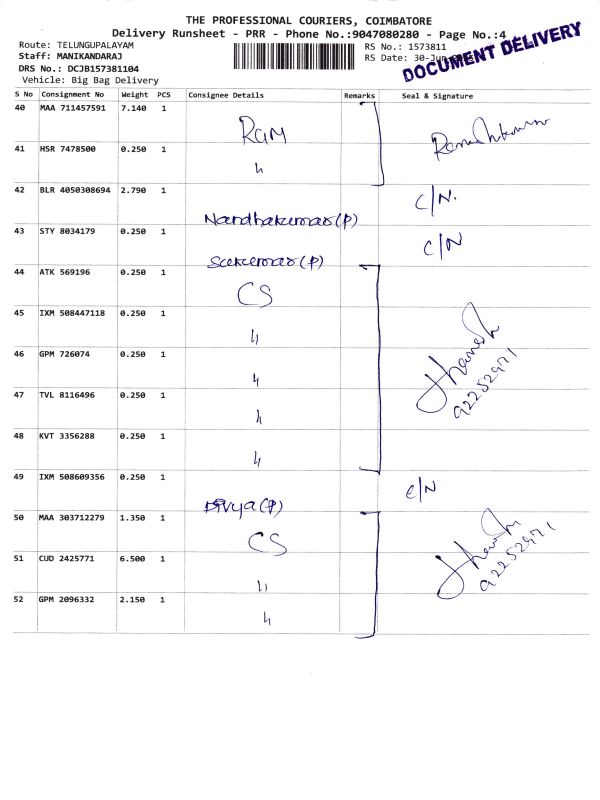 THE PROFESSIONAL COURIERS, COIMBATORE
Delivery Runsheet - PRR - Phone No.:9047080280 - Page No.:4
Route: TELUNGUPALAYAM
RS No.: 1573811
Staff: MANIKANDARAJ
RS Date: 30-Jun
DRS No.: DCJB157381104
Vehicle: Big Bag Delivery
DOCUMENT DELIVERY
S No Consignment No Weight PCS Consignee Details Remarks Seal & Signature
40 MAA 711457591 7.140 1
Ram
41 HSR 7478500 0.250 1
"
42 BLR 4050308694 2.790 1 C/N.
Nandhakumar(P)
43 STY 8034179 0.250 1 C/N
Sukumar(P)
44 ATK 569196 0.250 1
CS
45 IXM 508447118 0.250 1
"
46 GPM 726074 0.250 1
"
47 TVL 8116496 0.250 1
"
48 KVT 3356288 0.250 1
"
49 IXM 508609356 0.250 1 C/N
Divya(P)
50 MAA 303712279 1.350 1
CS
51 CUD 2425771 6.500 1
"
52 GPM 2096332 2.150 1
"